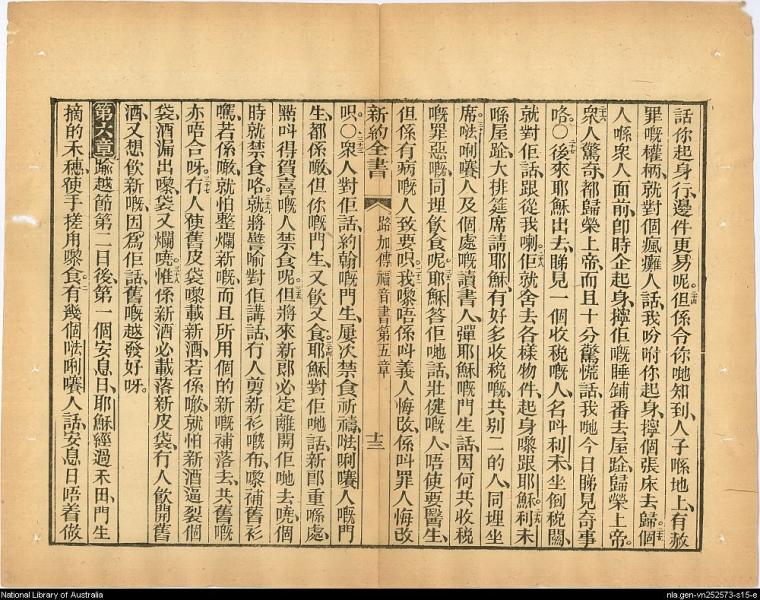 話你起身行邊件更易呢。但係令你哋知到人子喺地上、有赦
罪嘅權柄、就對個瘋癱人話、我吩咐你起身、擰個張床去歸。個
人喺衆人面前、卽時企起身、擰佢嘅睡鋪番去屋趾、歸榮上帝。
衆人驚奇、都歸榮上帝、而且十分驚慌話、我哋今日睇見奇事
咯。〇後來耶穌出去、睇見一個收稅嘅人、名叫利未、坐倒稅關、
就對佢話、跟從我喇。佢就舍去各樣物件、起身嚟跟耶穌。利未
喺屋趾大排筵席請耶穌、有好多收稅嘅、共別二的人、同埋坐
席。𠵽唎㘔人及個處嘅讀書人、彈耶穌嘅門生話、因何共收稅
嘅罪惡嘅、同埋飲食呢。耶穌答佢哋話、壯健嘅人、唔使要醫生、
但係有病嘅人致要呮。我嚟唔係叫義人悔改、係叫罪人悔改
新約全書
路加傳福音書第五章
十三
呮。〇衆人對佢話、約翰嘅門生、屢次禁食祈禱、𠵽唎㘔人嘅門
生、都係噉、但你嘅門生、又飲又食。耶穌對佢哋話、新郎重喺處、
點叫得賀喜嘅人禁食呢。但將來新郎必定離開佢哋去、嘵個
時就禁食咯。就將譬喻對佢講話、冇人剪新衫嘅布、嚟補舊衫
嘅、若係噉、就怕整爛新嘅、而且所用個的新嘅補落去、共舊嘅
亦唔合呀。冇人使舊皮袋嚟載新酒、若係噉、就怕新酒逼裂個
袋、酒漏出嚟、袋又爛嘵。惟係新酒必載落新皮袋、冇人飲開舊
酒、又想飲新嘅、因爲佢話、舊嘅越發好呀。
第六章 踰越節第二日後、第一個安息日、耶穌經過禾田、門生
摘的禾穗、使手搓用嚟食。有幾個𠵽唎㘔人話、安息日唔着做
National Library of Australia
nla.gen-vn252573-s15-e